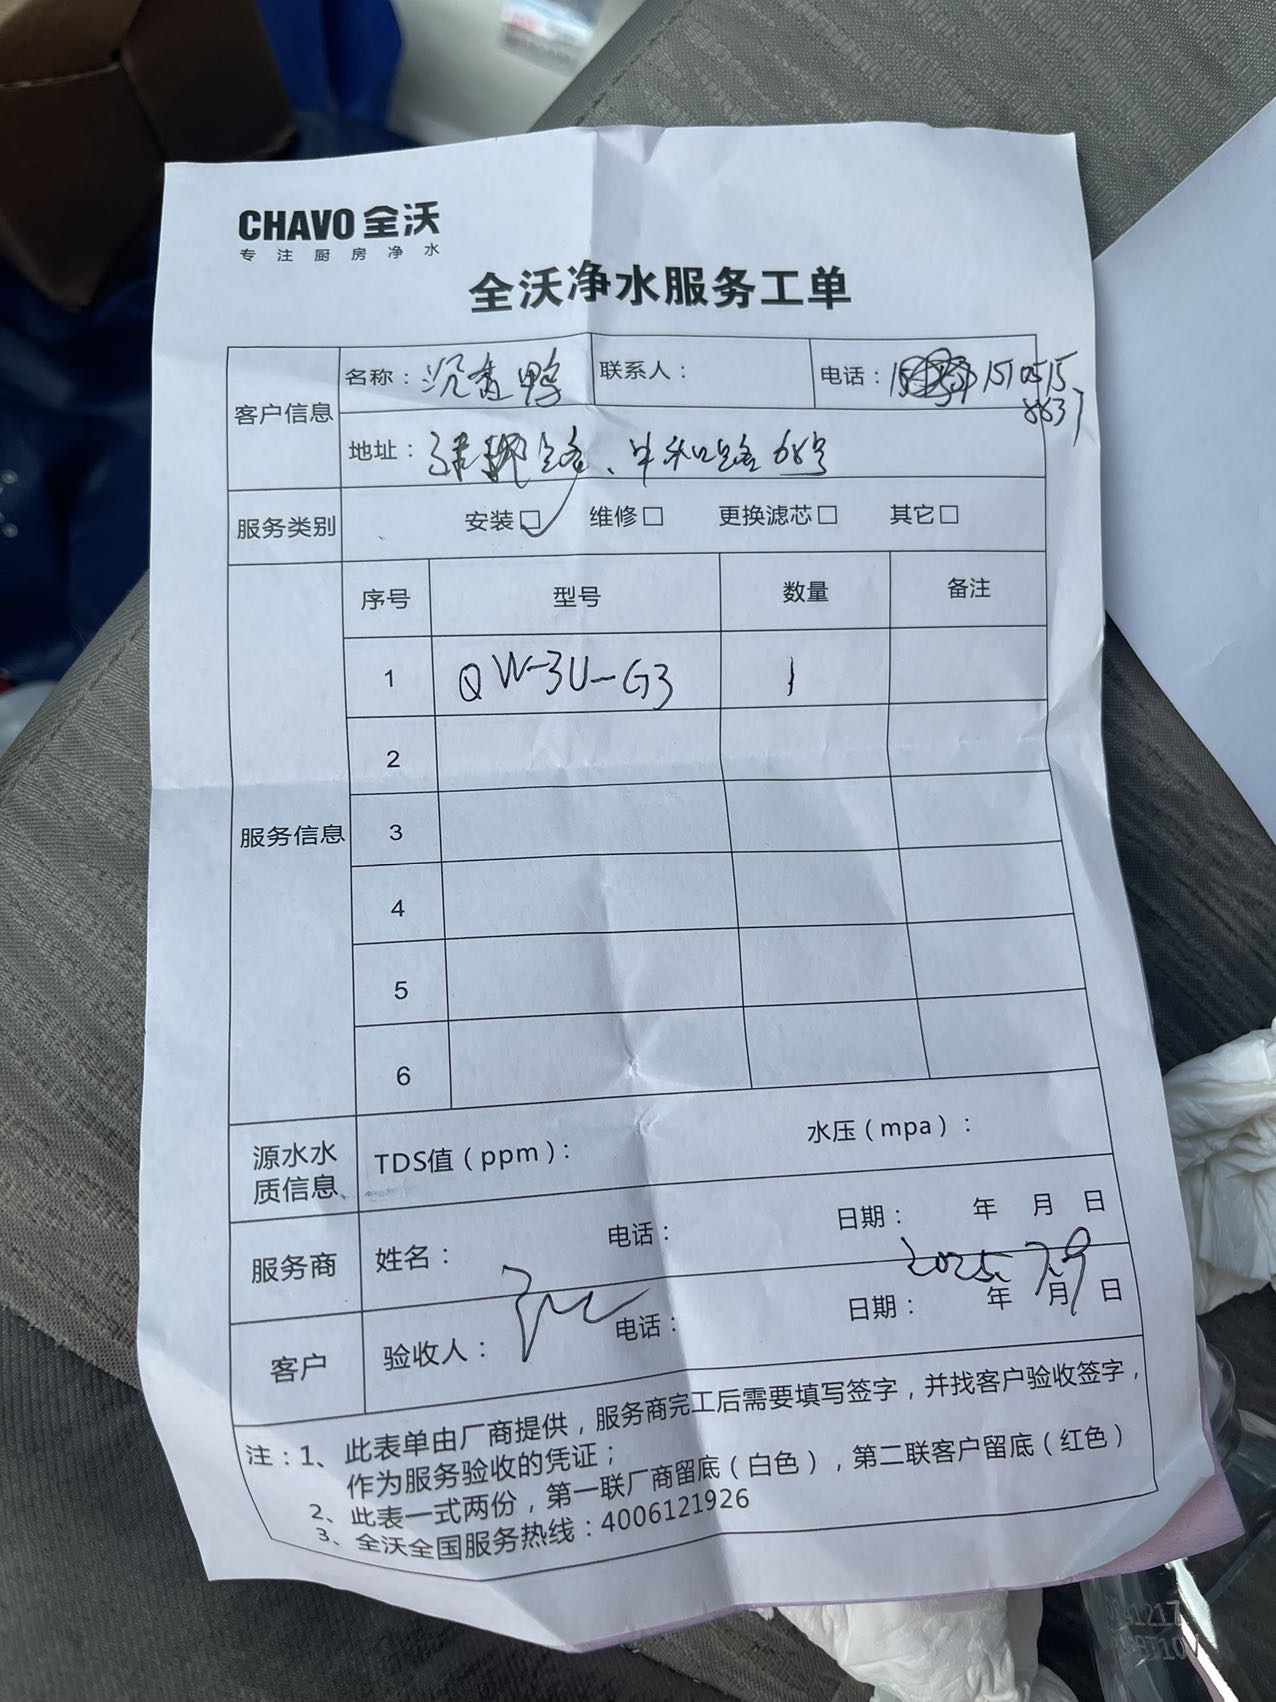 CHAVO 全沃
专注厨房净水
全沃净水服务工单
客户信息
名称：沉香鸭 联系人： 电话：15105158637
地址：路、牛和路68号
服务类别 安装☑ 维修□ 更换滤芯□ 其它□
服务信息
序号 型号 数量 备注
1 QW-3U-G3 1
2
3
4
5
6
源水水质信息 TDS值（ppm）： 水压（mpa）：
服务商 姓名： 电话： 日期： 年 月 日
2025.7.9
客户 验收人： 电话： 日期： 年 月 日
注：1、此表单由厂商提供，服务商完工后需要填写签字，并找客户验收签字，
作为服务验收的凭证；
2、此表一式两份，第一联厂商留底（白色），第二联客户留底（红色）
3、全沃全国服务热线：4006121926